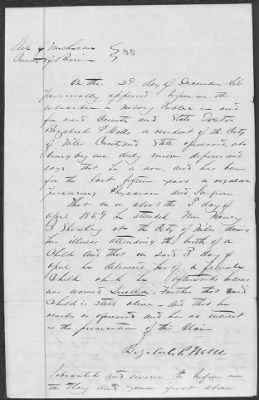 State of Michigan
County of Berrien } SS
On the 29 day of December 1866
personally appeared before me the
subscriber a Notary Public in and
for said County and State Doctor
Bezaleel P Wells a resident of the City
of Niles County and State aforesaid, who
being by me duly sworn deposes and
says that he is now, and has been
for the last fifteen years a regular
practicing Physician and Surgeon
That on or about the 3d day of
April 1859 he attended Mrs Nancy
at the City of Niles during
her illness attending the birth of a
Child And that on said 3d day of
April he delivered her of a female
Child which he afterwards
was named Further that said
Child is Still alive - And that he
resides as aforesaid and has no interest
in the prosecution of this Claim
Wells
Subscribed and sworn to before me
the day and year first above